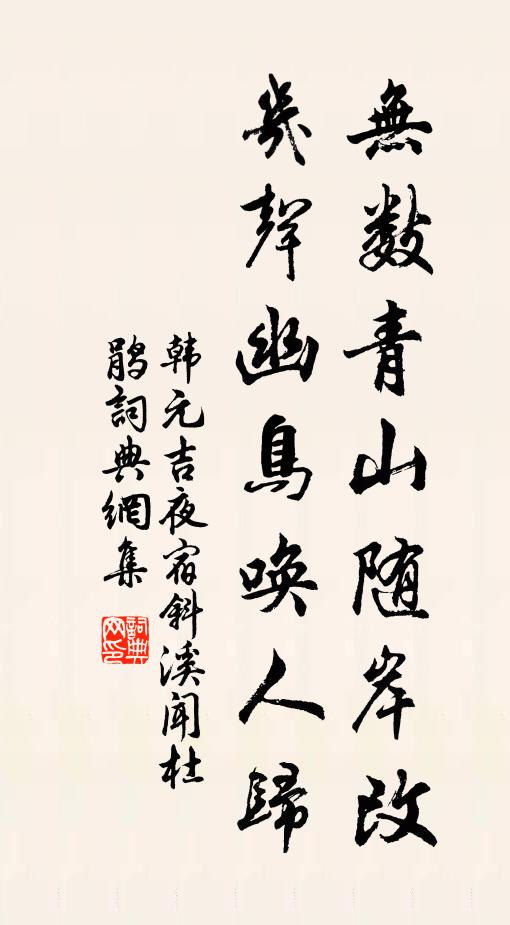 無數青山随岸改
幾聲幽鳥唤人歸
韩元吉夜宿斜溪闻杜
鹃詞典網集
詞典网印